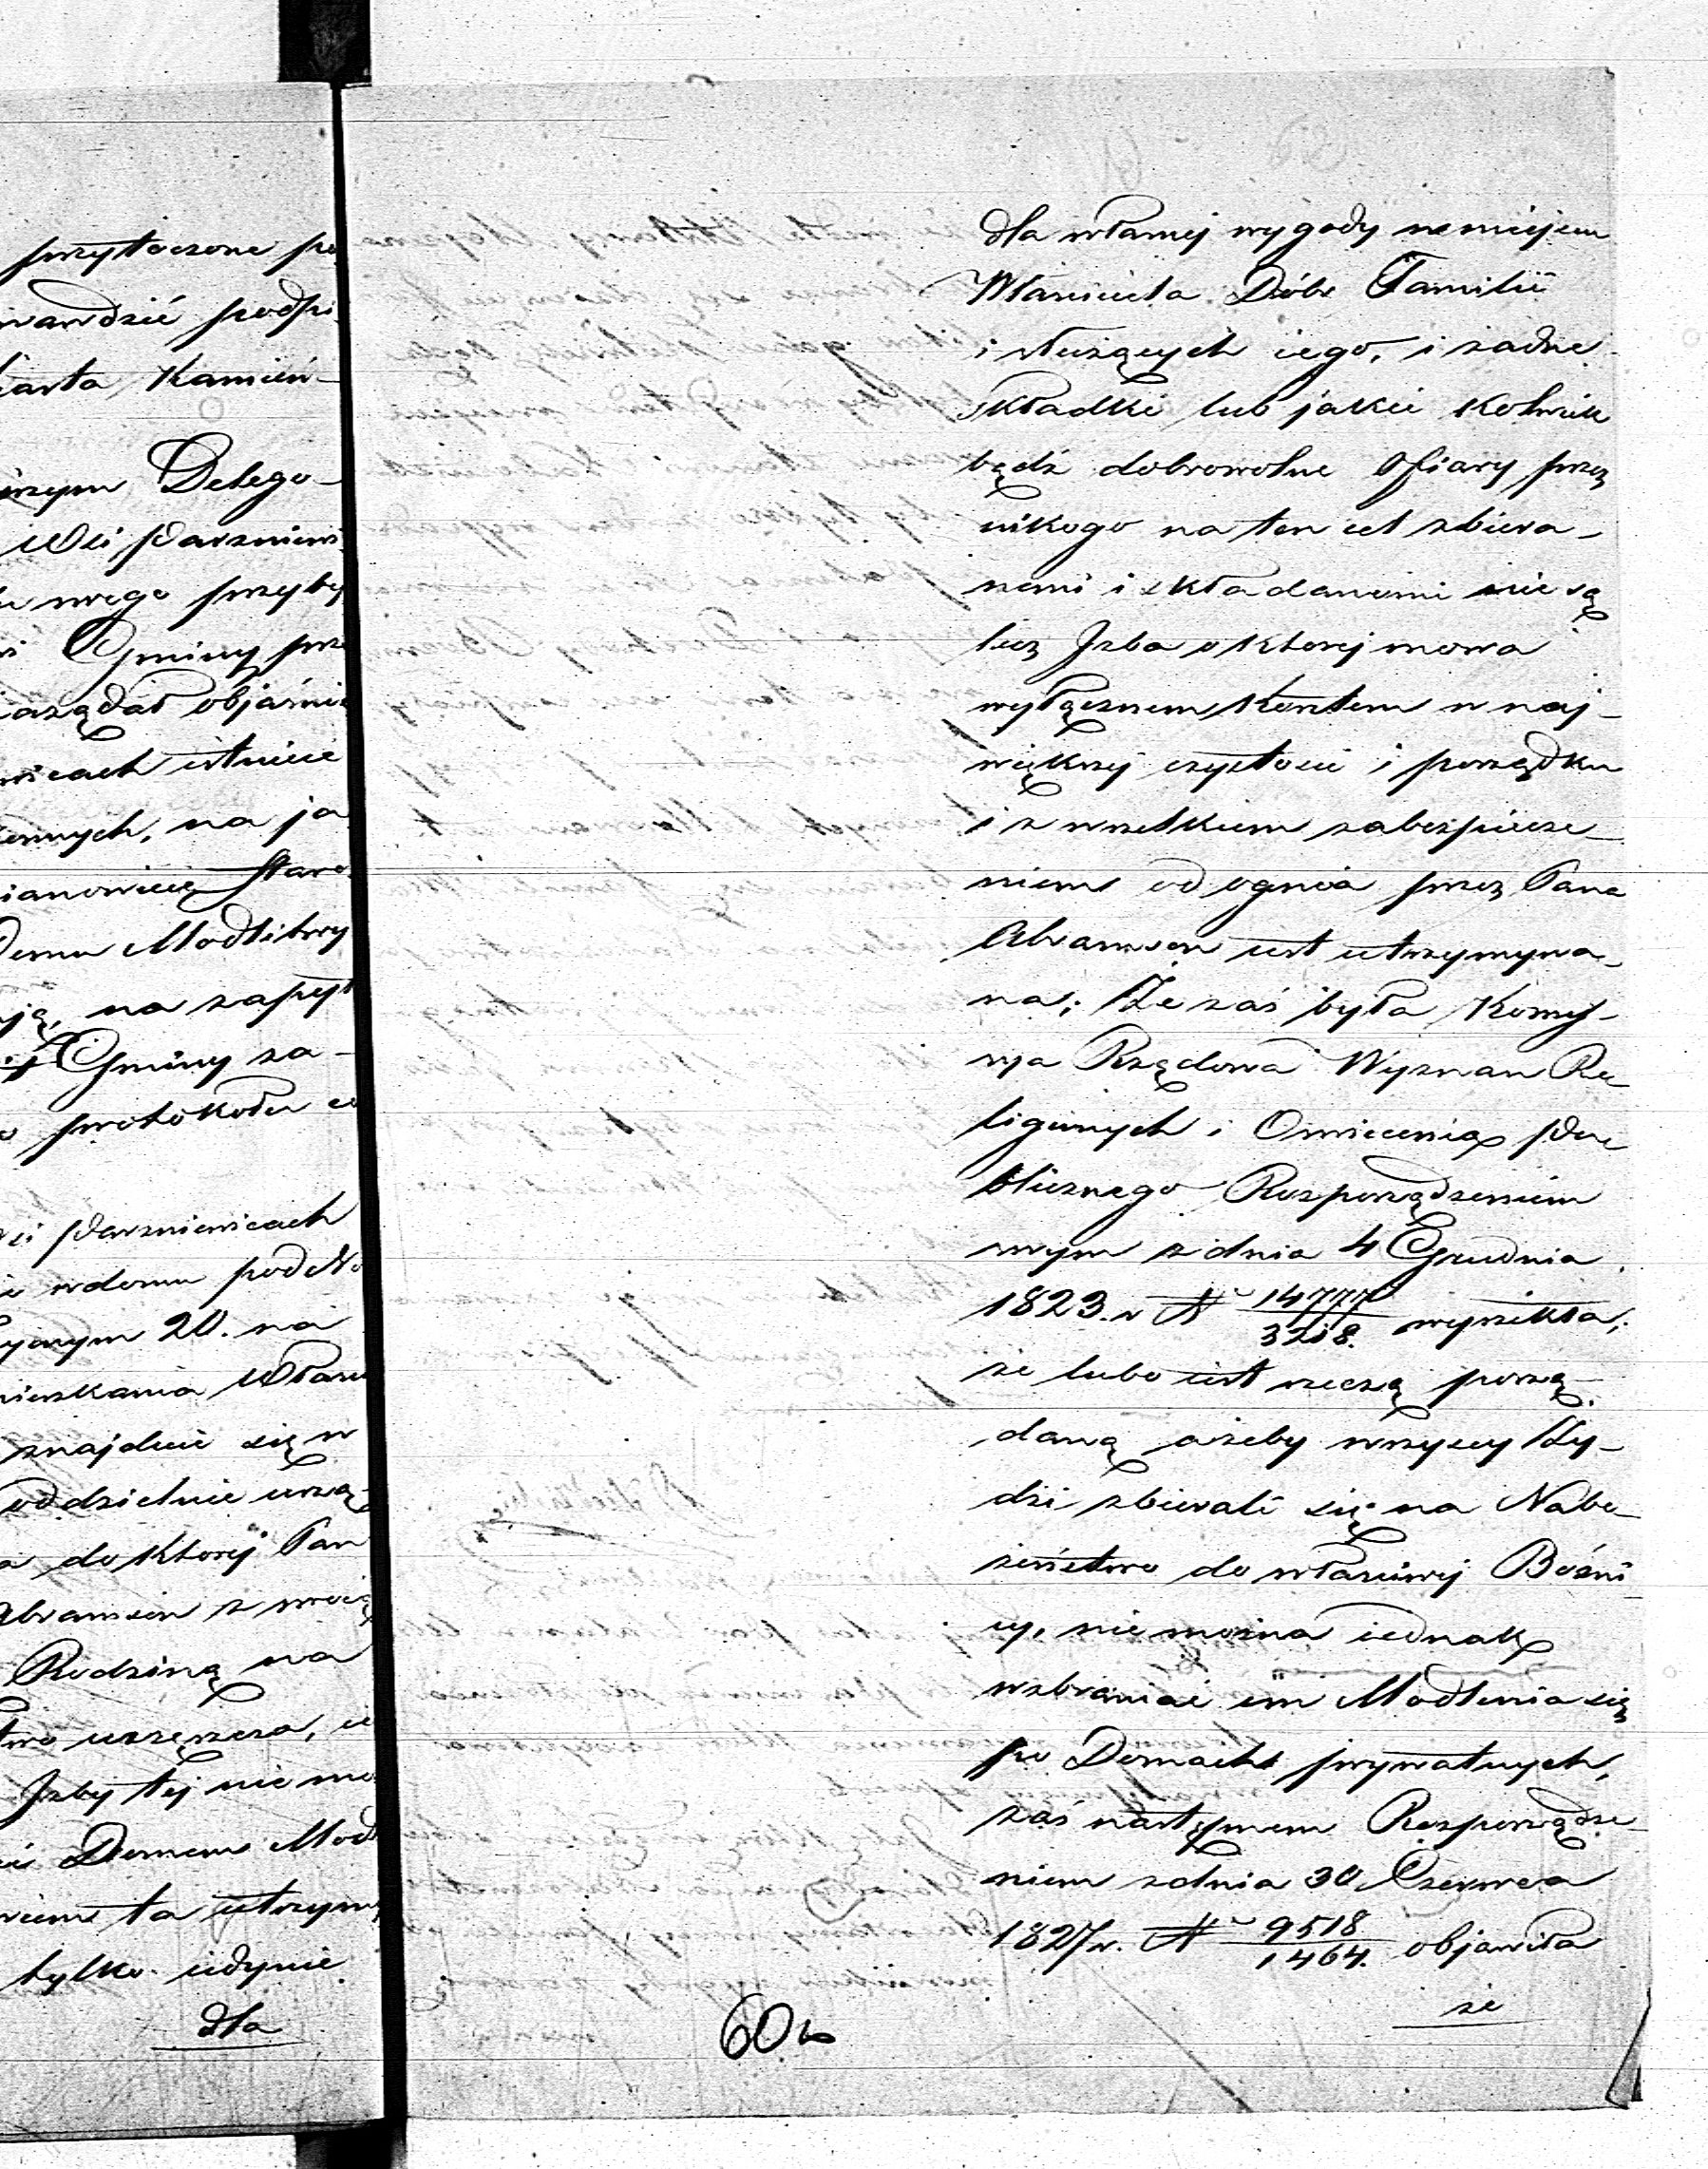 przytoczone po
wardzić podpi
karta Kamień-
Delego-
Wsi Parzniewi
swego przyby
Gminy prze
zażądał objaśnie
wicach istnieie
na ja
mianowicie Staro
Domu Modlitwy
na zapyt
Gminy za-
protokołu co
Wsi Parzniewicach
w domu pod No
20. na
mieszkania Właści
znajduie się w
oddzielnie urzą-
do ktorej Pan
Abramson z swoią
Rodziną na
uczęszcza, ie
Izby tej nie mo
Domem Modl
ta utrzym
tylko iedynie
dla
dla własnej wygody
Właściciela Dóbr Familii
i służących iego, i żadne
składki lub jakie kolwiek
bądź dobrowolne Ofiary przez
nikogo na ten cel zbiera-
nemi i składanemi nie są
lecz Izba o ktorej mowa
wyłącznem kosztem w naj-
większej czystości i porządku
i z wszelkiem zabezpiecze-
niem od ognia przez Pana
Abramson iest utrzymywa-
na; Że zaś była Komys-
syja Rządowa Wyznan Re-
ligijnych i Oswiecenia Pu
blicznego Rozporządzeniem
swym z dnia 4 Grudnia
1823. r N 14777/3218. wyrzekła;
że lubo iest rzeczą porzą-
daną ażeby wszyscy Ży-
dzi zbierali się na Nabo-
żeństwo do właściwej Bożni
cy, nie można iednak
wzbraniać im Modlenia się
po Domach prywatnych,
zaś następnem Rozporządze-
niem z dnia 30 Czerwca
1827 r. N 9518/1464. objawiła
że
60